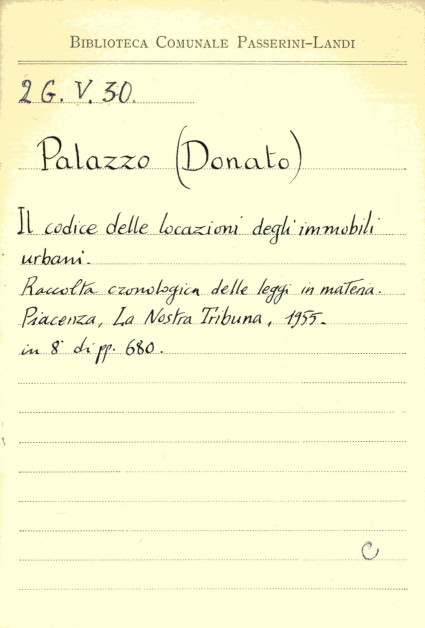 BIBLIOTECA COMUNALE PASSERINI-LANDI
2 G. V. 30.
Palazzo (Donato)
Il codice delle locazioni degli immobili
urbani.
Raccolta cronologica delle leggi in materia.
Piacenza, La Nostra Tribuna, 1955.
in 8° di pp. 680.
C